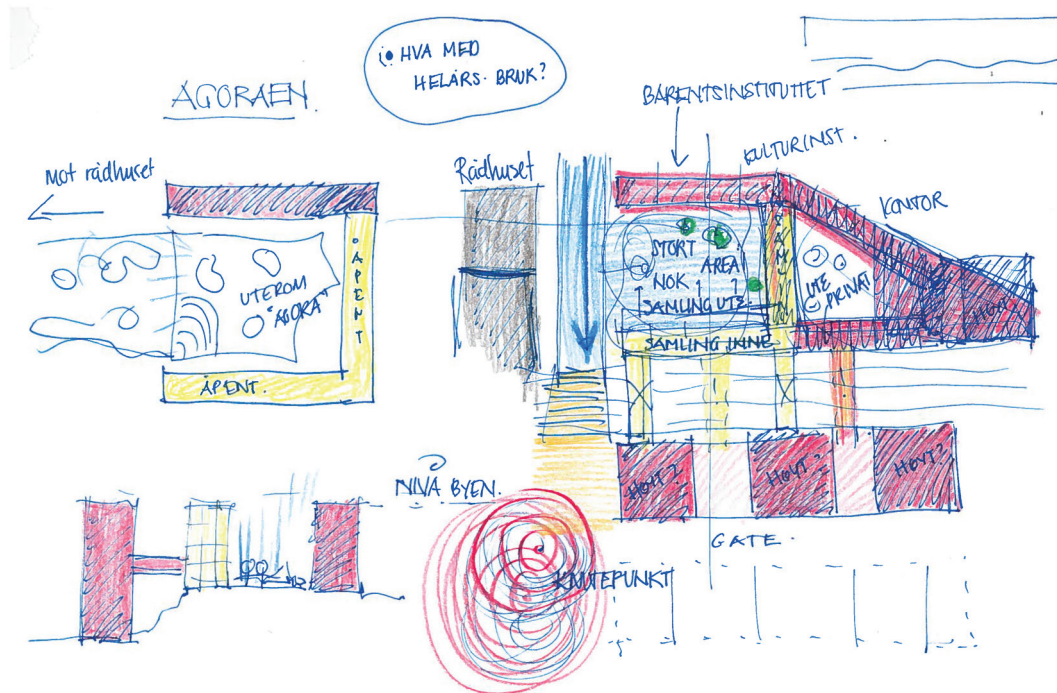 HVA MED
HELÅRS. BRUK?
AGORAEN.
BARENTSINSTITUTTET
KULTURINST.
KONTOR
Mot rådhuset
Rådhuset
ÅPENT
UTEROM
"AGORA"
ÅPENT.
STORT
NOK AREAL
SAMLING UTE
SAMLING INNE
UTE
PRIVAT
HØYT
HØYT?
HØYT?
HØYT?
NIVÅ BYEN.
GATE.
KNUTEPUNKT